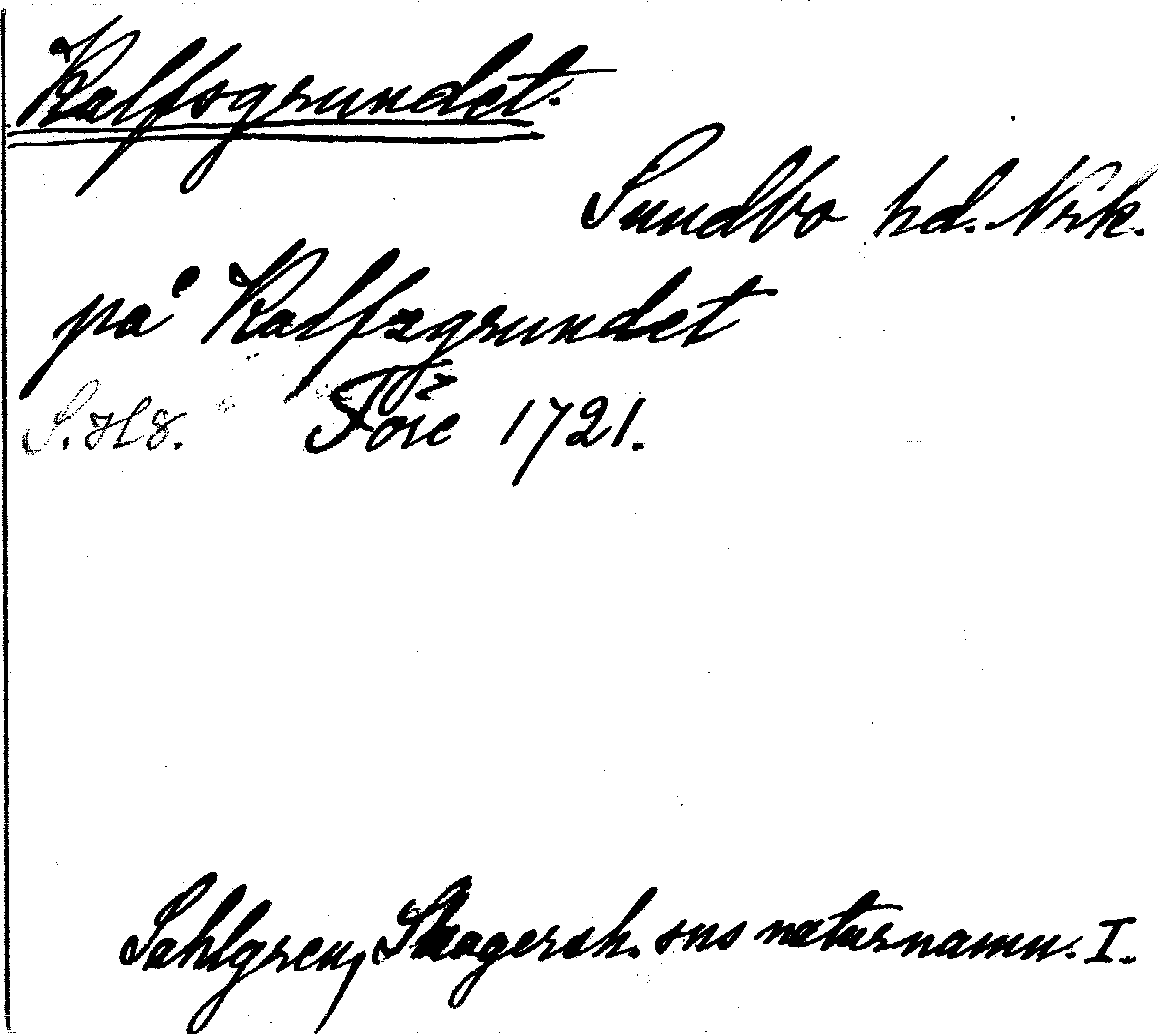 Kalfsgrundet.
Sundbo hd. Nrk.
på Kalfzgrundet
S. 48. Före 1721.
Sahlgren, Skagersh. sns naturnamn. I.